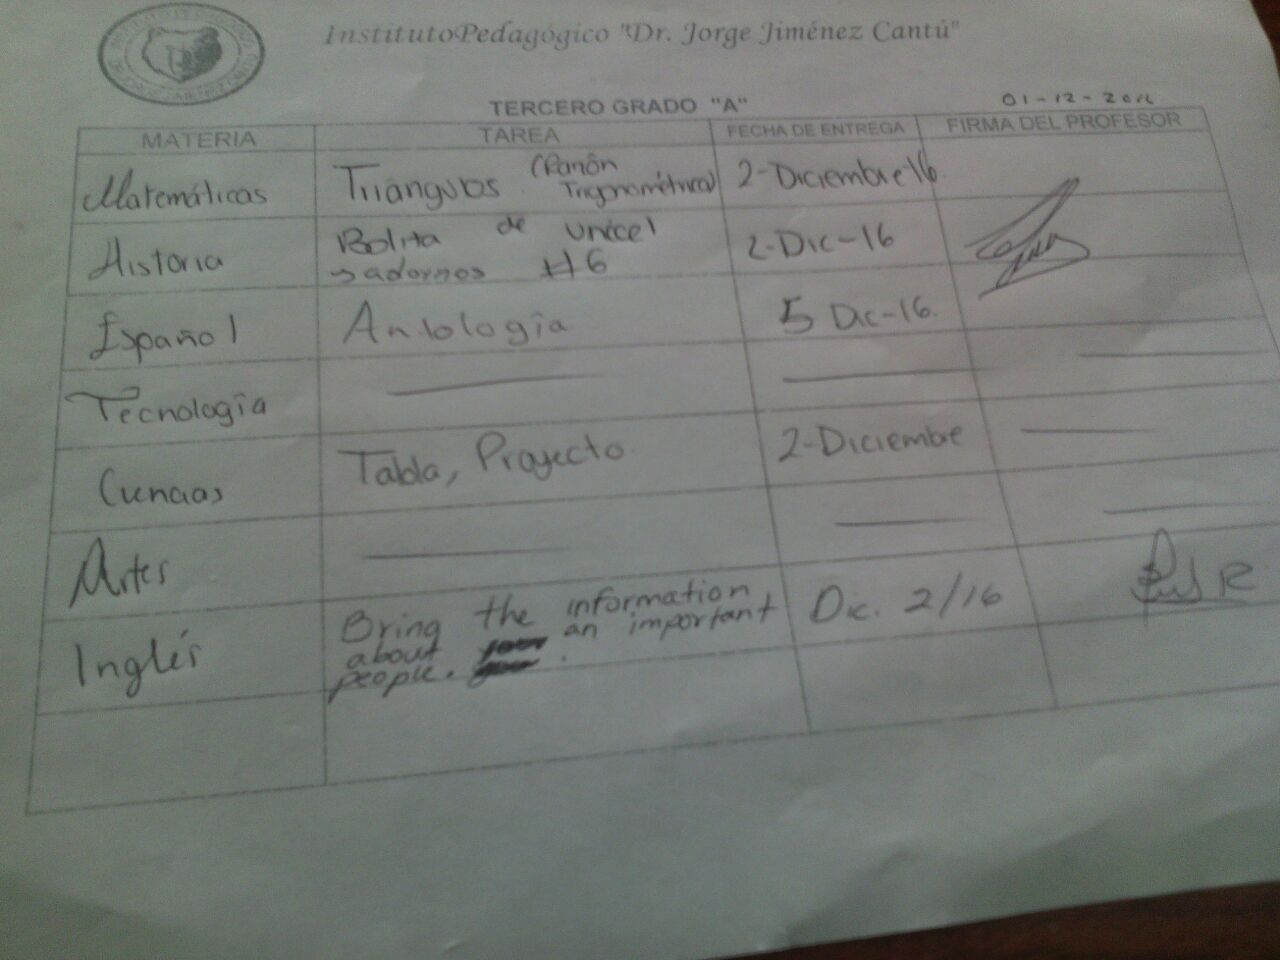 InstitutoPedagógico "Dr. Jorge Jiménez Cantú"
TERCERO GRADO "A"
01-12-2016
MATERIA TAREA FECHA DE ENTREGA FIRMA DEL PROFESOR
Matemáticas Triángulos (Razón Trigonométrica) 2-Diciembre 16
Historia Bolita de unicel
y adornos #6 2-Dic-16
Español Antología 5 Dic-16.
Tecnología
Ciencias Tabla, Proyecto 2-Diciembre
Artes
Inglés Bring the information
about an important
people. Dic. 2/16